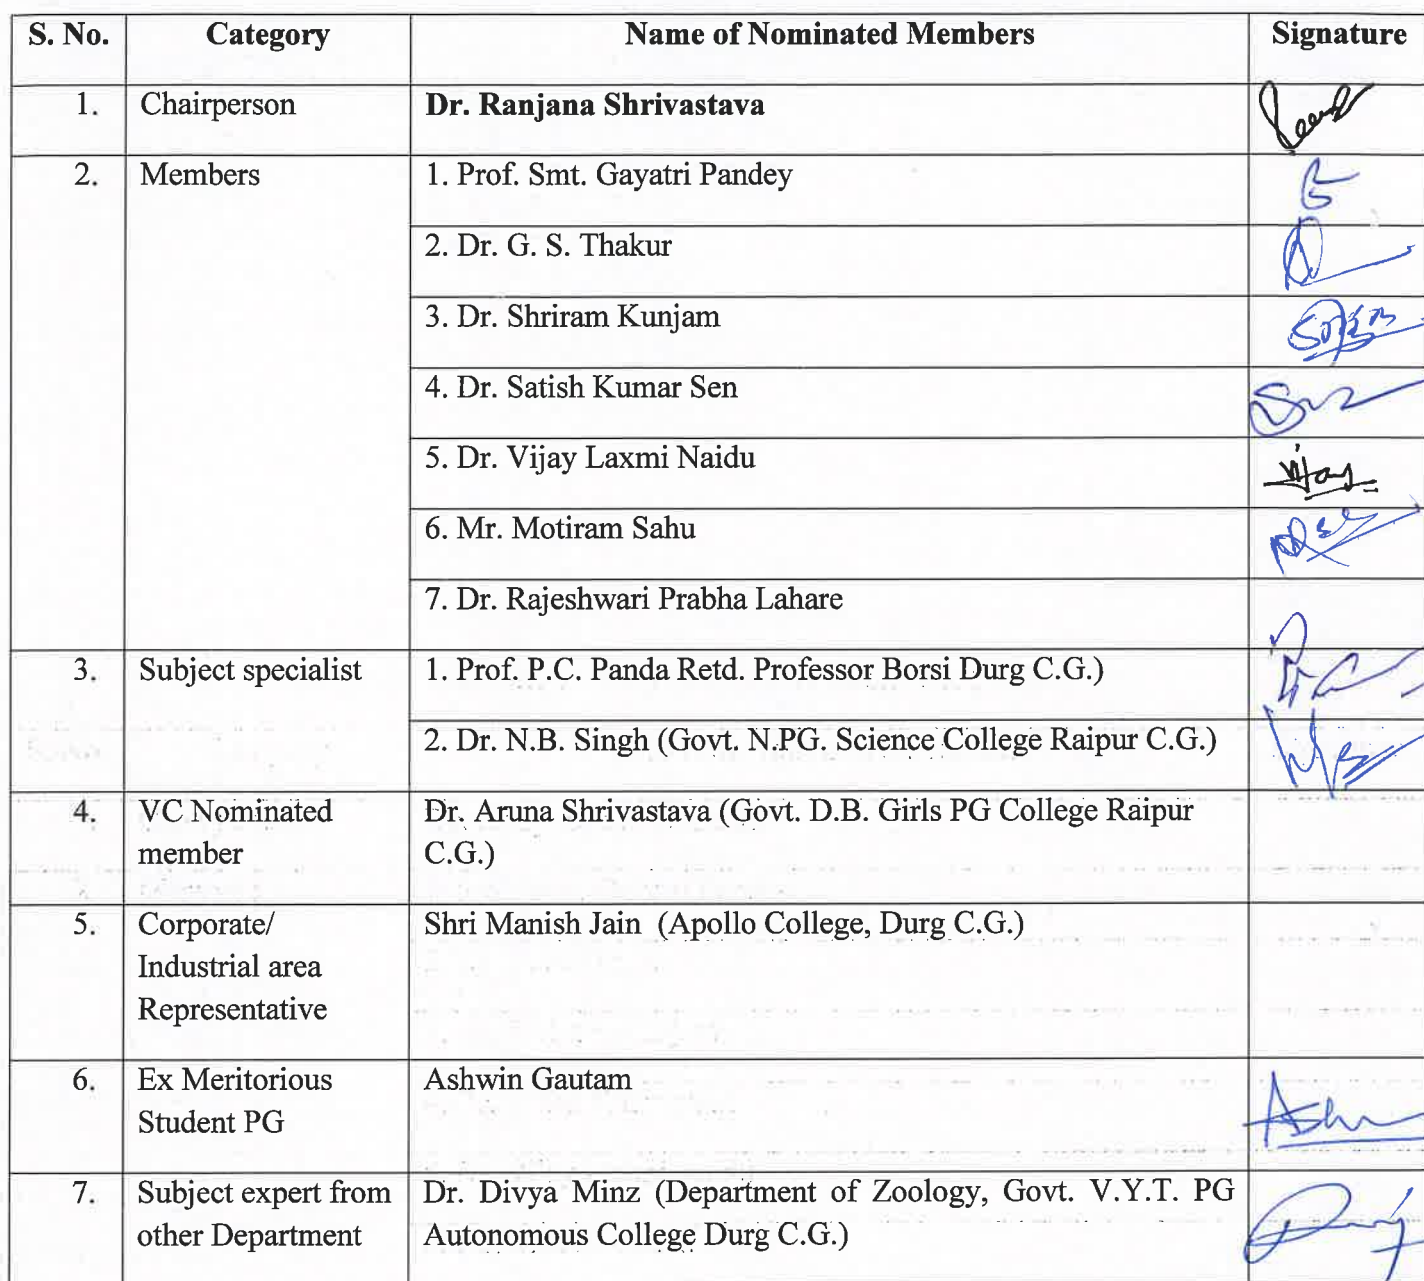 S. No. Category Name of Nominated Members Signature
1. Chairperson Dr. Ranjana Shrivastava
2. Members 1. Prof. Smt. Gayatri Pandey
2. Dr. G. S. Thakur
3. Dr. Shriram Kunjam
4. Dr. Satish Kumar Sen
5. Dr. Vijay Laxmi Naidu
Vijay
6. Mr. Motiram Sahu
7. Dr. Rajeshwari Prabha Lahare
3. Subject specialist 1. Prof. P.C. Panda Retd. Professor Borsi Durg C.G.)
2. Dr. N.B. Singh (Govt. N.PG. Science College Raipur C.G.)
4. VC Nominated Dr. Aruna Shrivastava (Govt. D.B. Girls PG College Raipur
member C.G.)
5. Corporate/ Shri Manish Jain (Apollo College, Durg C.G.)
Industrial area
Representative
6. Ex Meritorious Ashwin Gautam
Student PG
7. Subject expert from Dr. Divya Minz (Department of Zoology, Govt. V.Y.T. PG
other Department Autonomous College Durg C.G.)